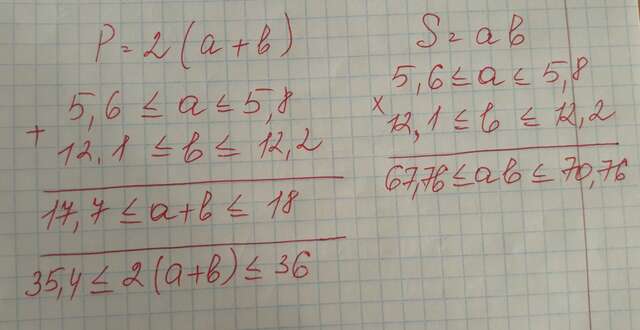 P = 2 (a + b)
5,6 ≤ a ≤ 5,8
+
12,1 ≤ b ≤ 12,2
17,7 ≤ a + b ≤ 18
35,4 ≤ 2 (a + b) ≤ 36
S = a b
5,6 ≤ a ≤ 5,8
x
12,1 ≤ b ≤ 12,2
67,76 ≤ ab ≤ 70,76